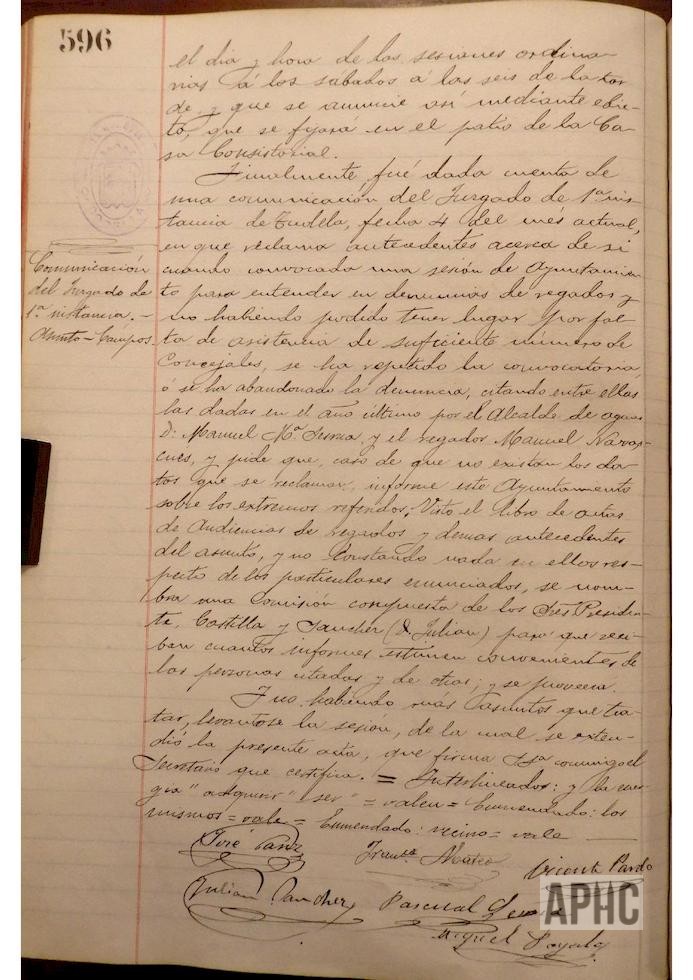 596
el dia y hora de las sesiones ordina-
rias á los sábados á las seis de la tar
de, y que se anuncie así mediante edic-
to, que se fijará en el patio de la Ca-
sa Consistorial.
Finalmente fué dada cuenta de
una comunicación del Juzgado de 1ª ins-
tancia de Tudela, fecha 4 del mes actual,
en que reclama antecedentes acerca de si
cuando convocada una sesión de Ayuntamien-
to para entender en denuncias de regados y
no habiendo podido tener lugar por fal-
ta de asistencia de suficiente número de
Concejales, se ha repetido la convocatoria,
ó se ha abandonado la denuncia, citando entre ellas
las dadas en el año último por el Alcalde de aguas
D. Manuel Mª y el regador Manuel
y pide que, caso de que no existan los da-
tos que se reclaman, informe este Ayuntamiento
sobre los extremos referidos. Visto el libro de actas
de Audiencias de regados y demas antecedentes
del asunto, y no constando nada en ellos res-
pecto de los particulares enunciados, se nom-
bra una Comisión compuesta de los Sres Presiden-
te, Castilla y Sanchez (D. Julian) para que reci-
ban cuantos informes estimen convenientes de
las personas citadas y de otras; y se proveerá.
Y no habiendo mas asuntos que tra-
tar, levantose la sesión, de la cual se exten-
dió la presente acta, que firma SSª conmigo el
Secretario que certifica. = Interlineados: y la
"adquirir" "ser" = valen = Enmendado: los
mismos = vale = Enmendado: vecino = vale
Comunicación
del Juzgado de
1ª instancia.-
Asunto-Campos
José Sanz
Franco Mateo
Vicente Pardo
Julian Sanchez
Pascual
Miguel
APHC